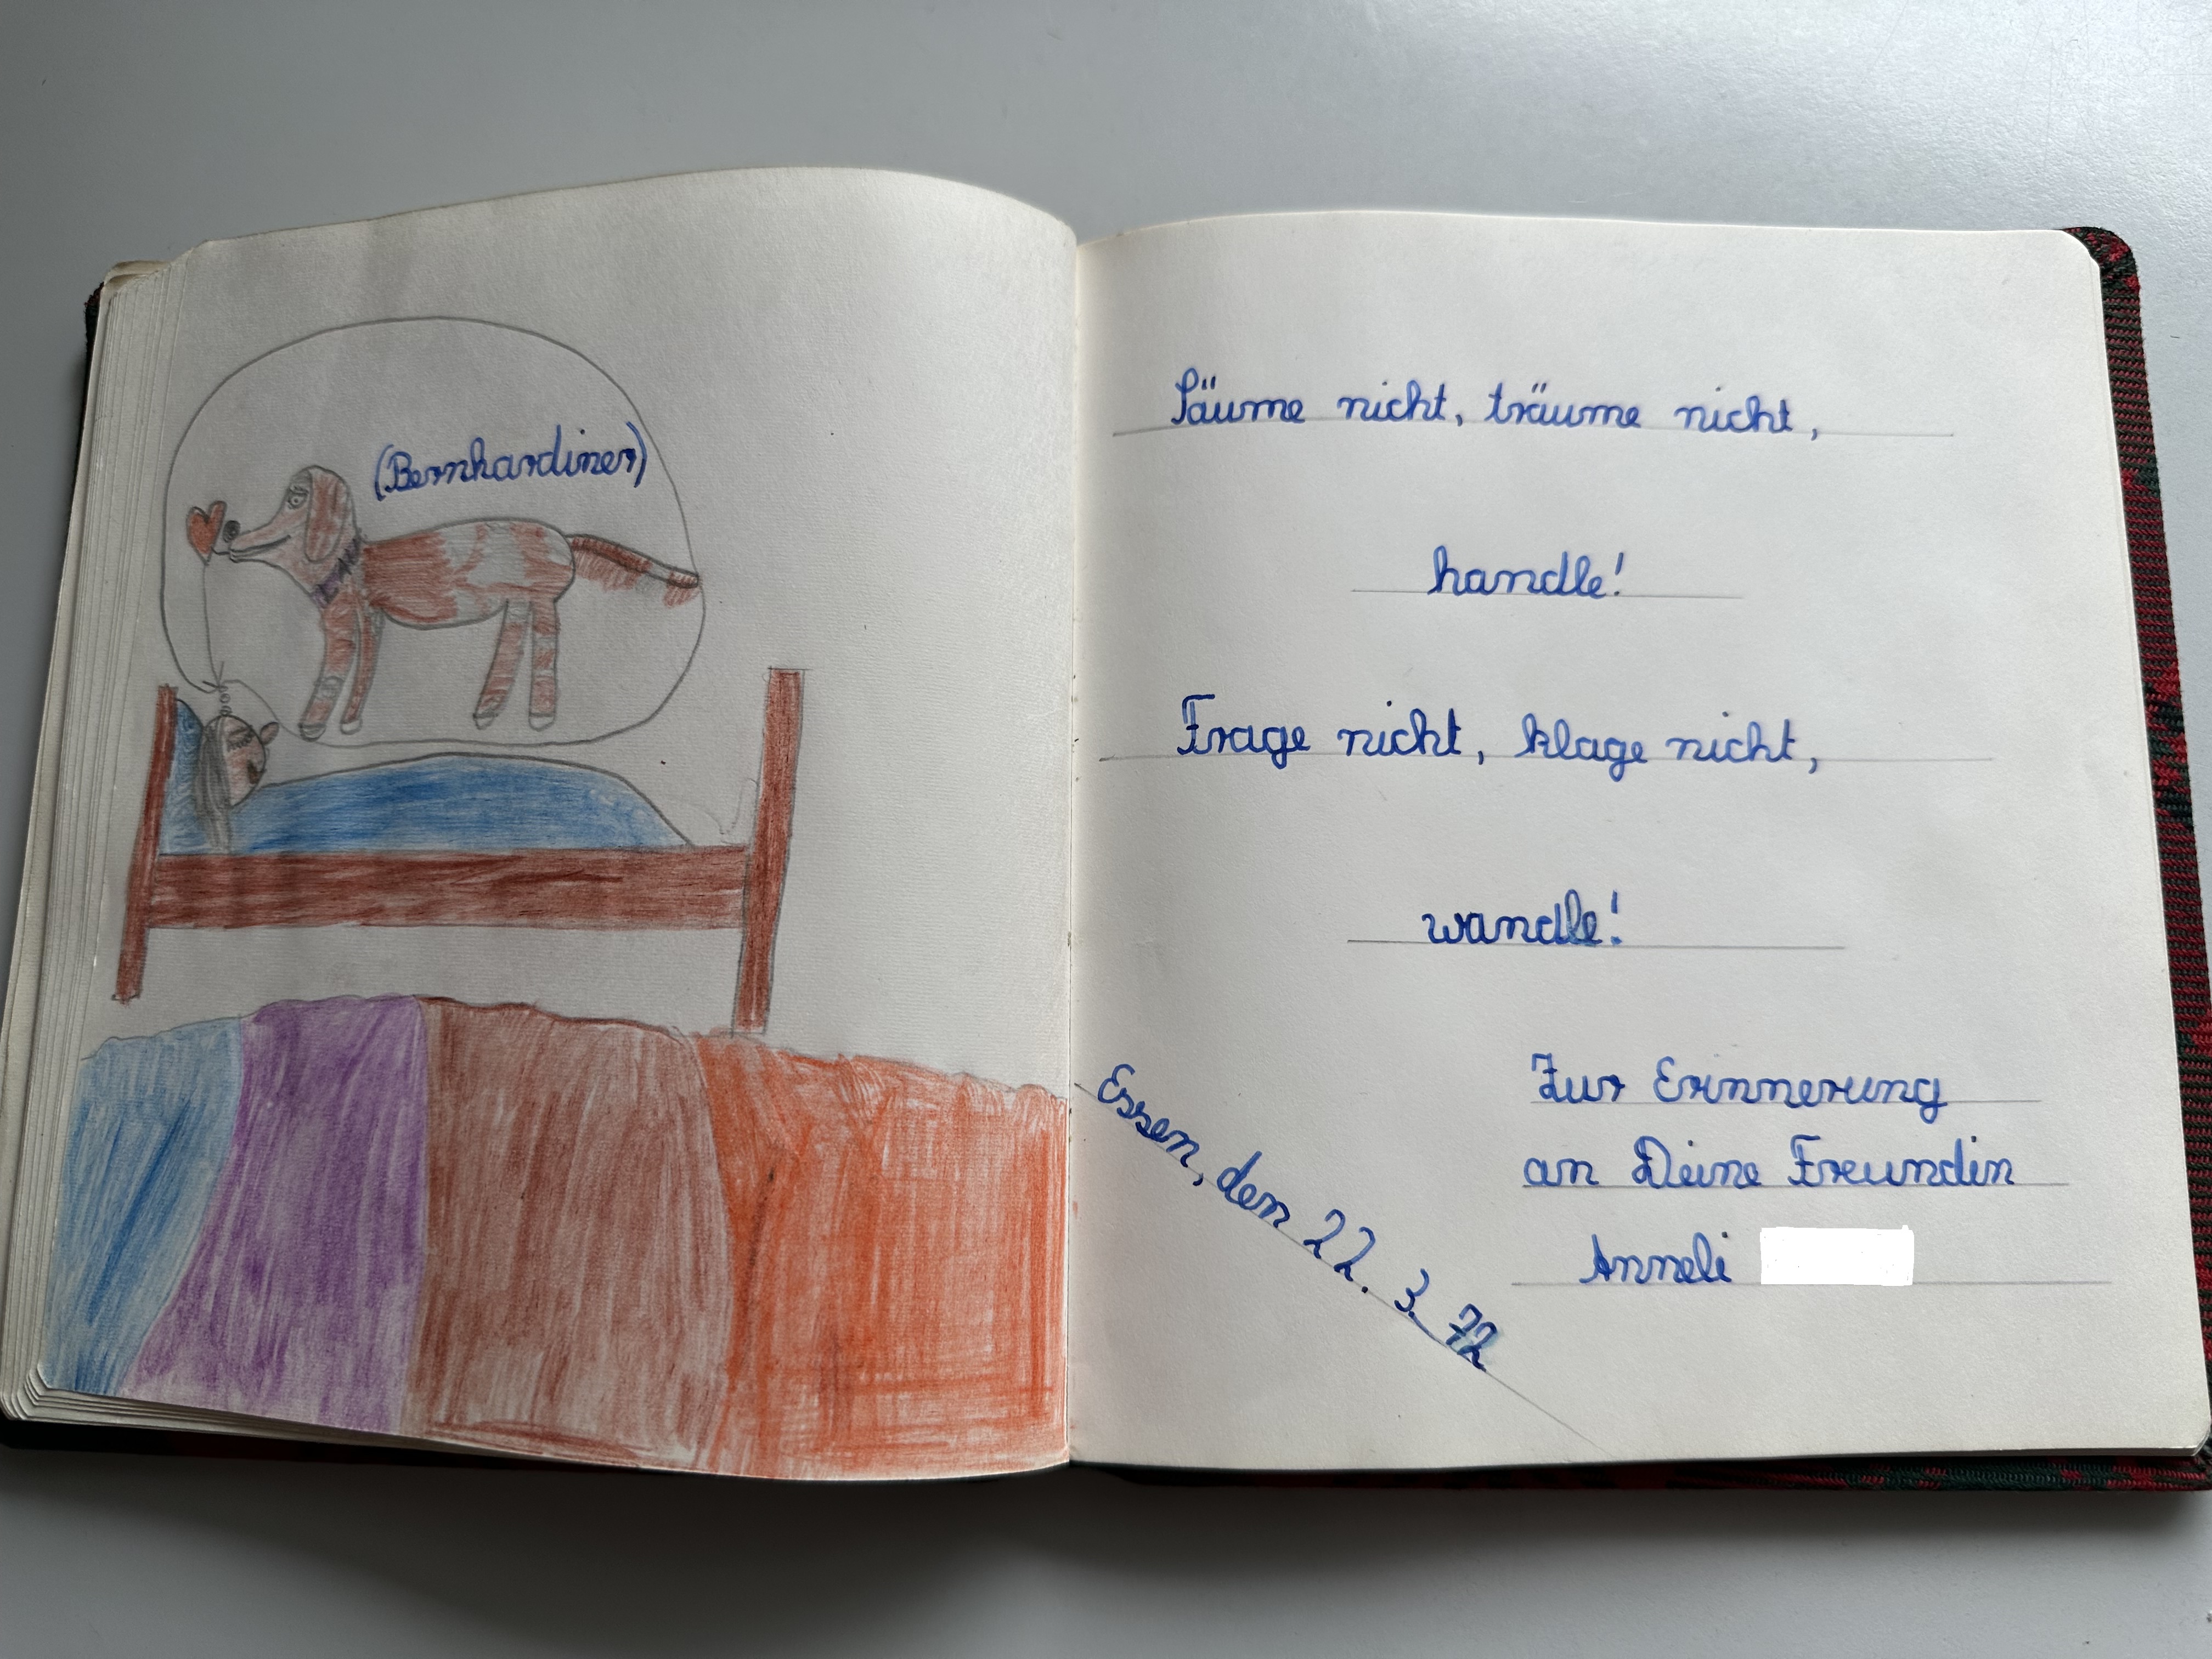 (Bernhardiner)
Säume nicht, träume nicht,
handle!
Frage nicht, klage nicht,
wandle!
Zur Erinnerung
an Deine Freundin
Anneli
Essen, den 22. 3. 72